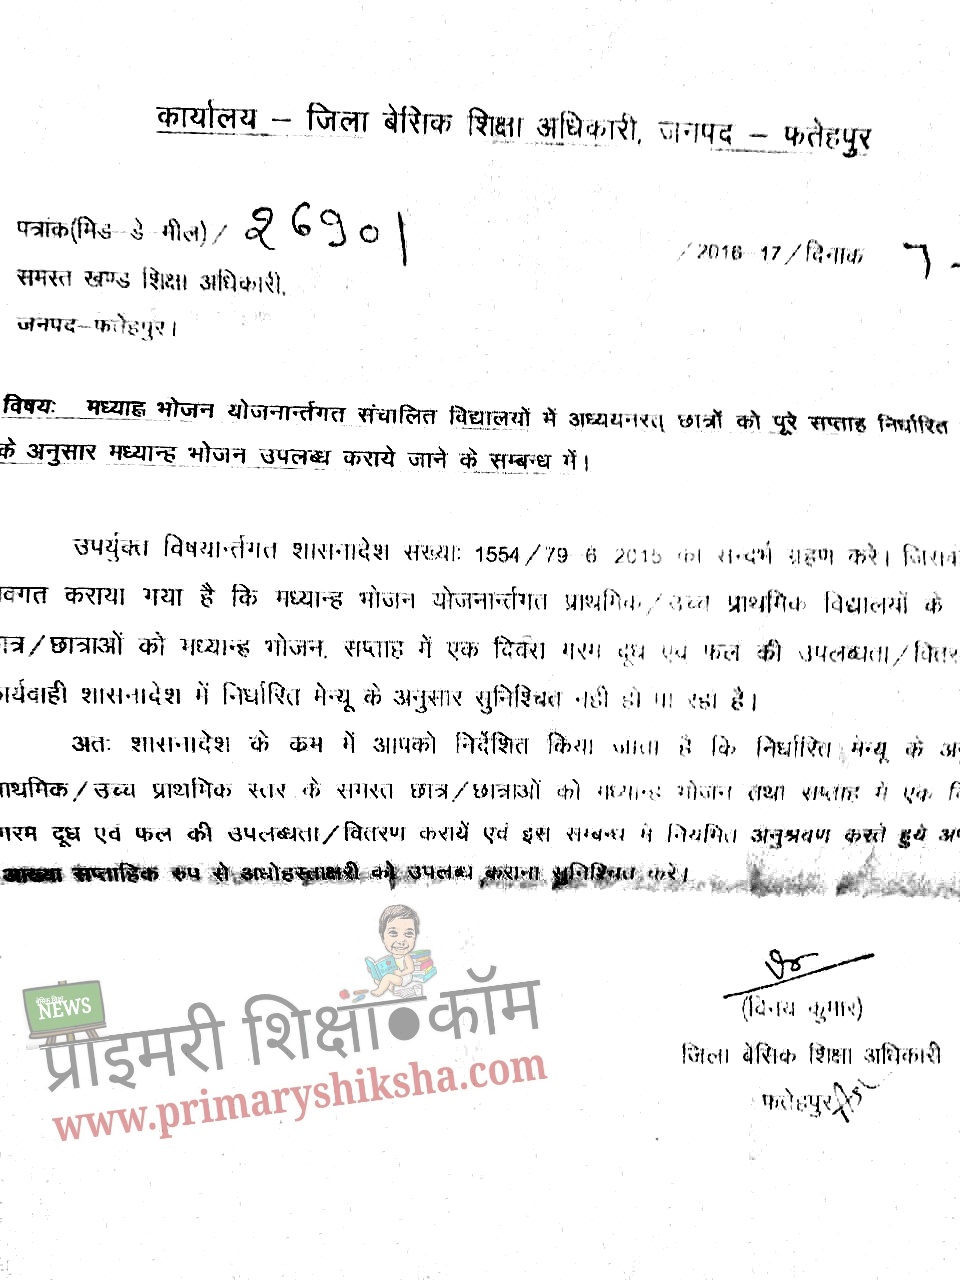 कार्यालय – जिला बेसिक शिक्षा अधिकारी, जनपद – फतेहपुर
पत्रांक(मिड डे मील) / 26901 / 2016-17 / दिनांक 7-
समस्त खण्ड शिक्षा अधिकारी,
जनपद–फतेहपुर।
विषयः मध्याह्न भोजन योजनार्न्तगत संचालित विद्यालयों में अध्ययनरत् छात्रों को पूरे सप्ताह निर्धारित
के अनुसार मध्यान्ह भोजन उपलब्ध कराये जाने के सम्बन्ध में।
उपर्युक्त विषयार्न्तगत शासनादेश संख्याः 1554/79-6-2015 का सन्दर्भ ग्रहण करे।
वगत कराया गया है कि मध्यान्ह भोजन योजनार्न्तगत प्राथमिक/उच्च प्राथमिक विद्यालयों के
ात्र/छात्राओं को मध्यान्ह भोजन, सप्ताह में एक दिवस गरम दूध एवं फल की उपलब्धता/वितर
ार्यवाही शासनादेश में निर्धारित मेन्यू के अनुसार सुनिश्चित नही हो पा रहा है।
अतः शासनादेश के क्रम में आपको निर्देशित किया जाता है कि निर्धारित मेन्यू के अनु
्राथमिक/उच्च प्राथमिक स्तर के समस्त छात्र/छात्राओं को मध्यान्ह भोजन तथा सप्ताह में एक दि
गरम दूध एवं फल की उपलब्धता/वितरण करायें एवं इस सम्बन्ध में नियमित अनुश्रवण करते हुये अप
आख्या सप्ताहिक रुप से अधोहस्ताक्षरी को उपलब्ध कराना सुनिश्चित करे।
(विनय कुमार)
जिला बेसिक शिक्षा अधिकारी
फतेहपुर
NEWS
प्राइमरी शिक्षा●कॉम
www.primaryshiksha.com